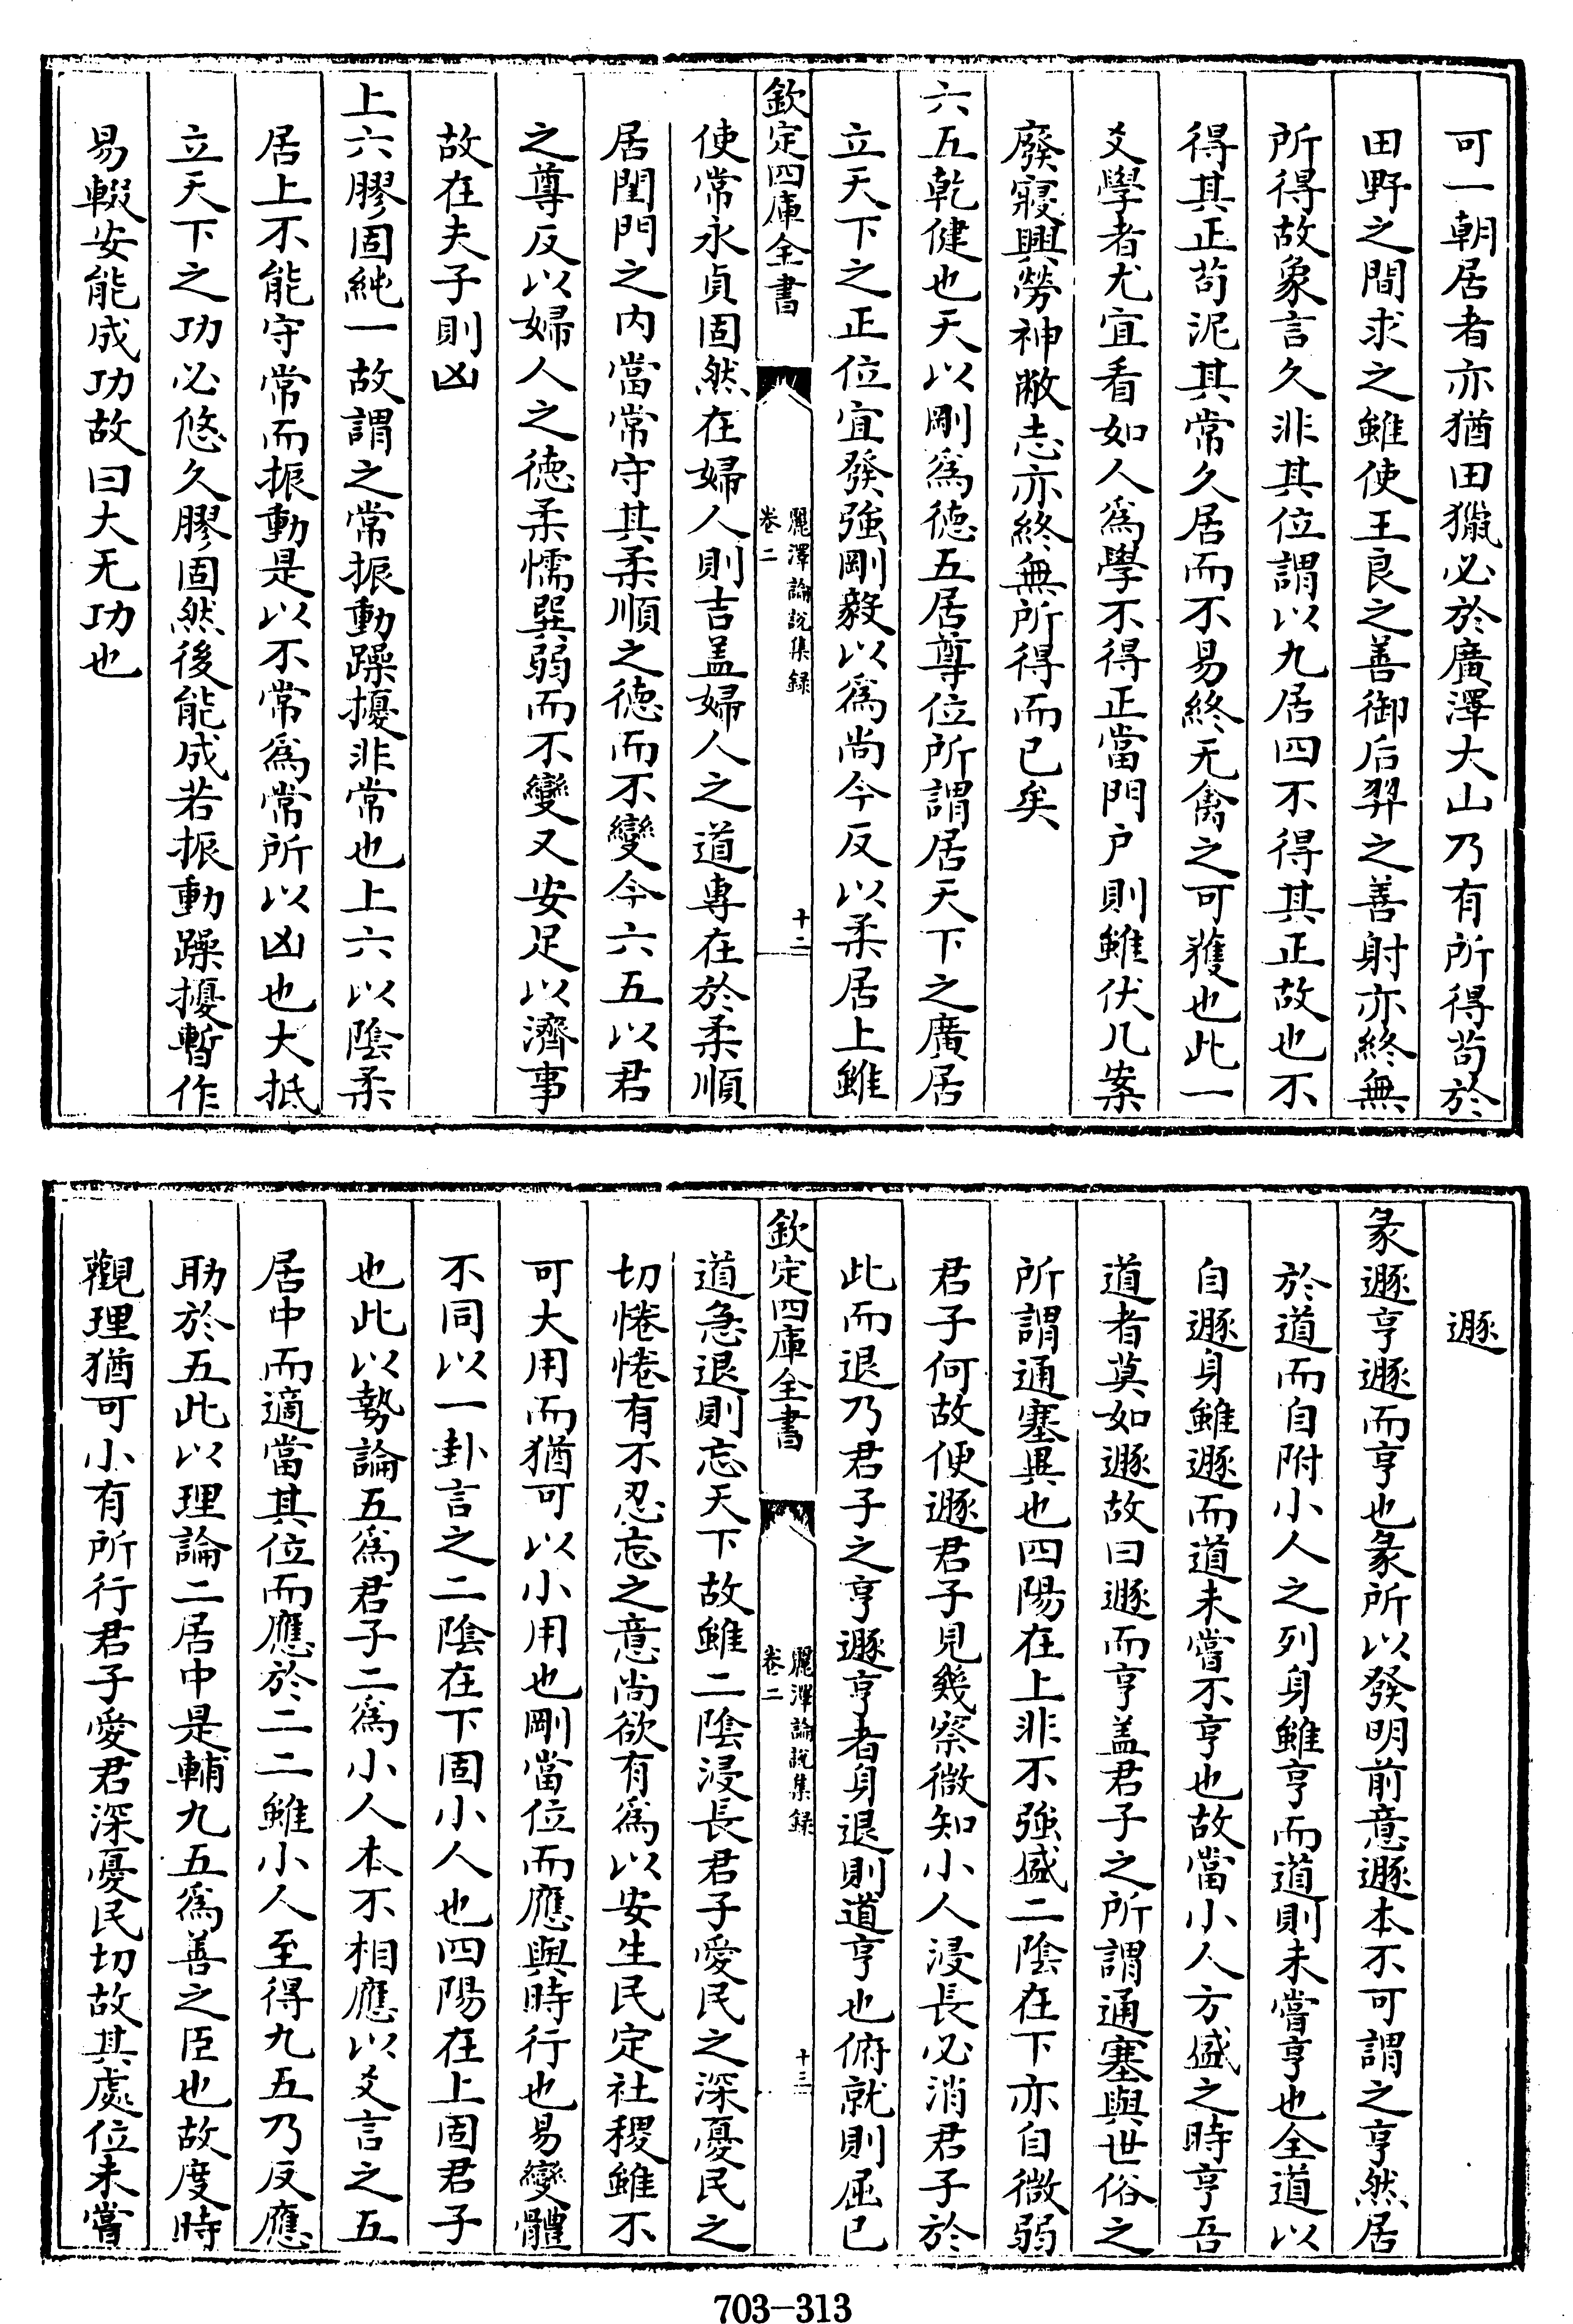 可一朝居者亦猶田獵必於廣澤大山乃有所得茍於
田野之間求之雖使王良之善御后羿之善射亦終無
所得故象言久非其位謂以九居四不得其正故也不
得其正茍泥其常久居而不易終无禽之可獲也此一
爻學者尤宜看如人為學不得正當門户則雖伏几案
廢寢興勞神敝志亦終無所得而已矣
六五乾健也天以剛為徳五居尊位所謂居天下之廣居
立天下之正位宜發強剛毅以為尚今反以柔居上雖
欽定四庫全書
麗澤論説集録
卷二
十二
使常永貞固然在婦人則吉盖婦人之道專在於柔順
居閨門之内當常守其柔順之徳而不變今六五以君
之尊反以婦人之徳柔懦巽弱而不變又安足以濟事
故在夫子則凶
上六膠固純一故謂之常振動躁擾非常也上六以陰柔
居上不能守常而振動是以不常為常所以凶也大抵
立天下之功必悠久膠固然後能成若振動躁擾暫作
易輟安能成功故曰大无功也
遯
彖遯亨遯而亨也彖所以發明前意遯本不可謂之亨然居
於道而自附小人之列身雖亨而道則未嘗亨也全道以
自遯身雖遯而道未嘗不亨也故當小人方盛之時亨吾
道者莫如遯故曰遯而亨盖君子之所謂通塞與世俗之
所謂通塞異也四陽在上非不強盛二陰在下亦自微弱
君子何故便遯君子見幾察微知小人浸長必消君子於
此而退乃君子之亨遯亨者身退則道亨也俯就則屈已
欽定四庫全書
麗澤論説集録
卷二
十三
道急退則忘天下故雖二陰浸長君子愛民之深憂民之
切惓惓有不忍忘之意尚欲有為以安生民定社稷雖不
可大用而猶可以小用也剛當位而應與時行也易變體
不同以一卦言之二陰在下固小人也四陽在上固君子
也此以勢論五為君子二為小人本不相應以爻言之五
居中而適當其位而應於二二雖小人至得九五乃反應
助於五此以理論二居中是輔九五為善之臣也故度時
觀理猶可小有所行君子愛君深憂民切故其處位未嘗
703—313